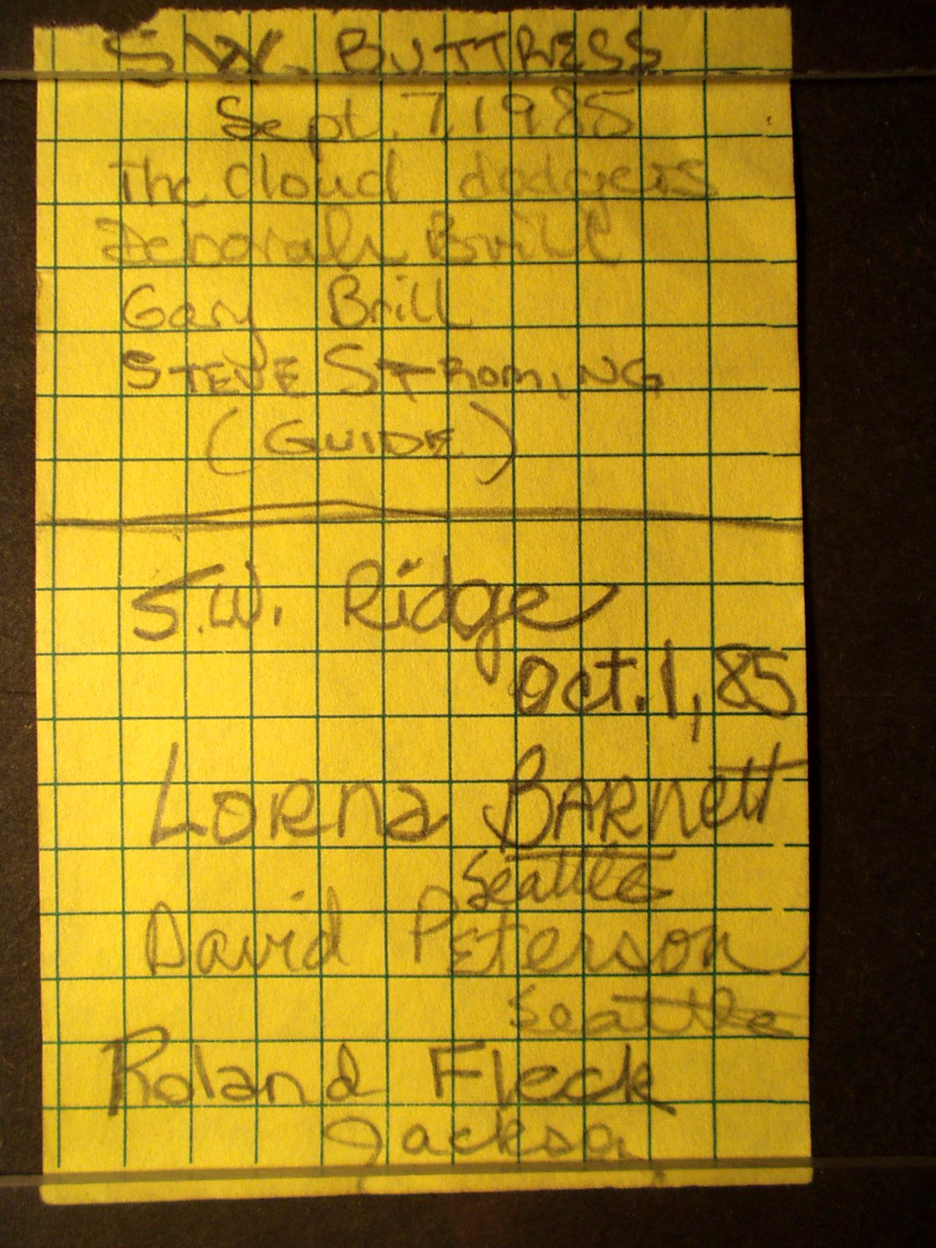 S.W. BUTTRESS
Sept. 7, 1985
The Cloud dodgers
Deborah Brill
Gary Brill
STEVE STROMING
(GUIDE)
S.W. Ridge
Oct. 1, 85
LORNa BARNett
Seattle
David PETerson
Seattle
Roland Fleck
Jackson